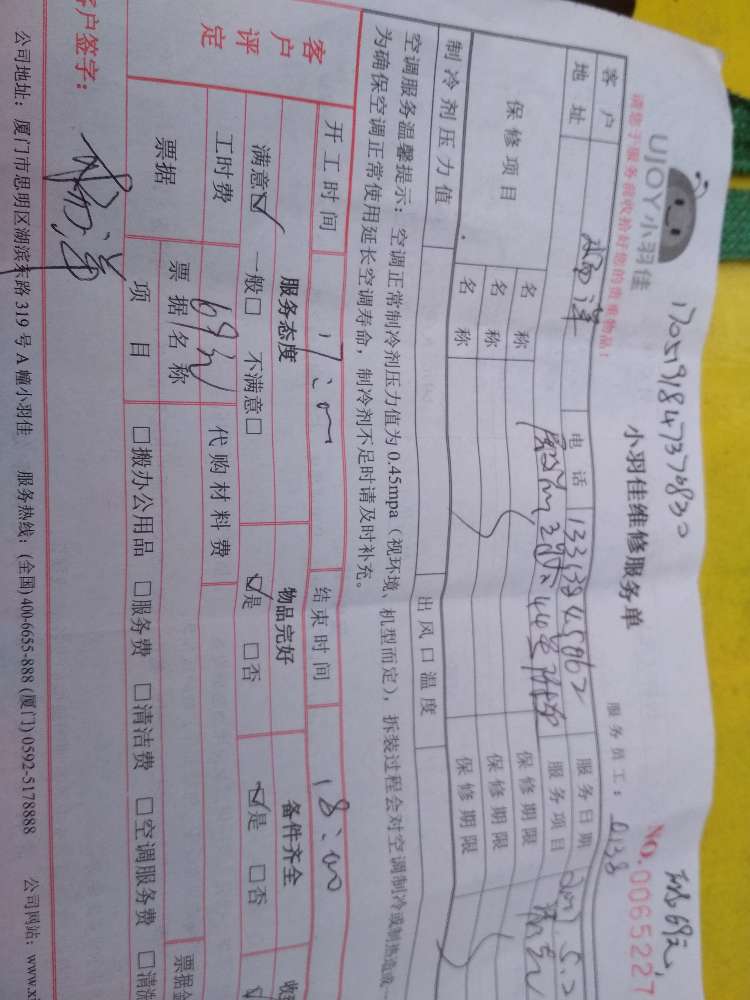 请您于服务前收拾好您的贵重物品!
UJOY小羽佳
小羽佳维修服务单
服务员工: 0138
NO.0065227
客户 杨洋 电话 服务日期
地址 服务项目
保修项目 名称 保修期限
名称 保修期限
名称 保修期限
制冷剂压力值 出风口温度
空调服务温馨提示: 空调正常制冷剂压力值为0.45mpa (视环境、机型而定), 拆装过程会对空调制冷或制热造成
为确保空调正常使用延长空调寿命, 制冷剂不足时请及时补充。
开工时间 17:00 结束时间 18:00
客户评定 服务态度 物品完好 备件齐全
满意☑ 一般□ 不满意□ ☑是 □否 ☑是 □否
工时费 69元 代购材料费
票据 票据名称 票据金
项目 □搬办公用品 □服务费 □清洁费 □空调服务费 □清洗
客户签字: 杨洋
公司地址: 厦门市思明区湖滨东路319号A幢小羽佳 服务热线: (全国) 400-6655-888 (厦门) 0592-5178888 公司网站: www.x